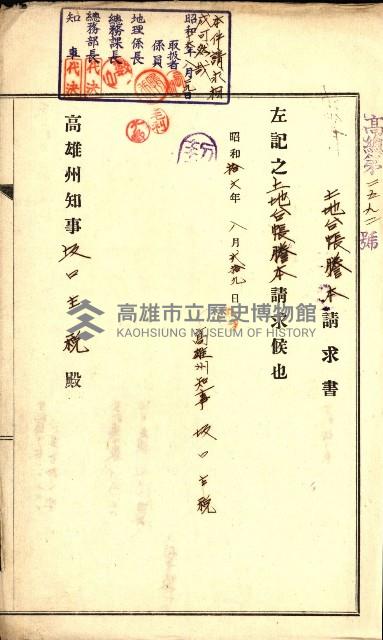 高總第二五九二號
土地台帳謄本請求書
左記之土地台帳謄本請求候也
昭和拾六年 八月貳拾九日
高雄州知事 坂口主税
高雄州知事坂口主税殿
本件請求相成可然哉
昭和 年八月 日
取扱者
係員
地理係長
總務課長
總務部長
代決
知事
代決
高雄市立歷史博物館
KAOHSIUNG MUSEUM OF HISTORY